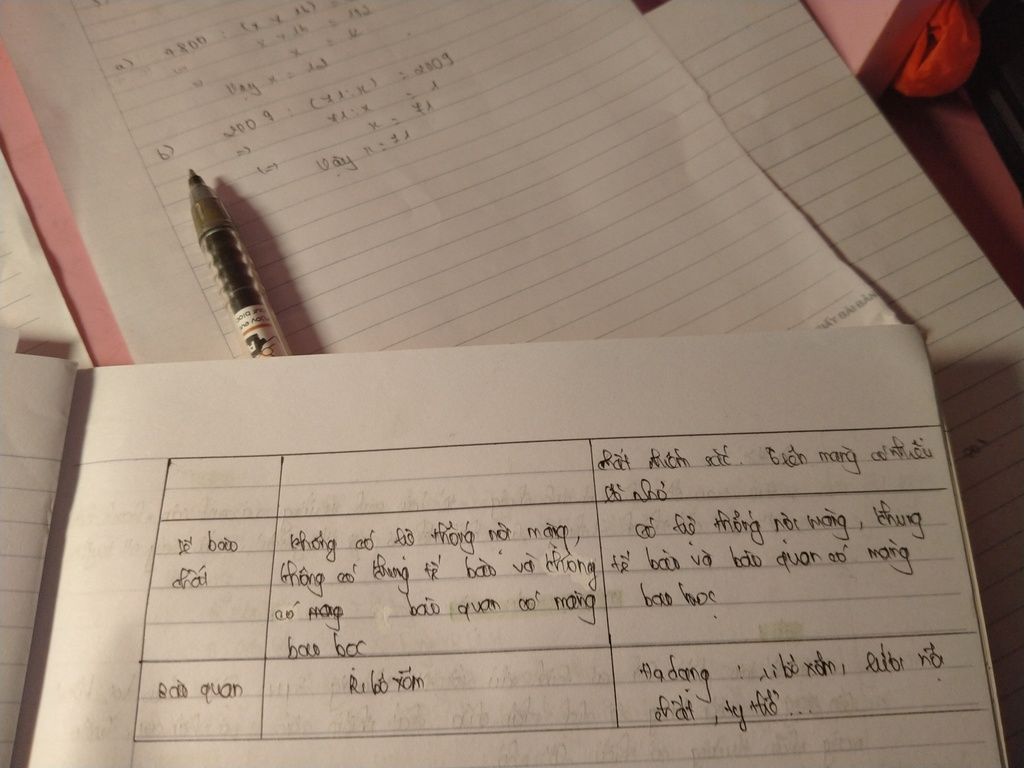 a) 9800 :
Vậy x =
b) 2009 : (x1:x) = 2009
x1:x = 1
x = x1
Vậy x = x1
GIẤY BÀI
chất nhiễm sắc. Trên màng có nhiều
lỗ nhỏ
Tế bào
chất
không có hệ thống nội màng,
không có khung tế bào và không
có màng bào quan có màng
bao bọc
có hệ thống nội màng, khung
tế bào và bào quan có màng
bao bọc
Bào quan
Ribôxôm
Đa dạng : ribôxôm, lưới nội
chất, ty thể...